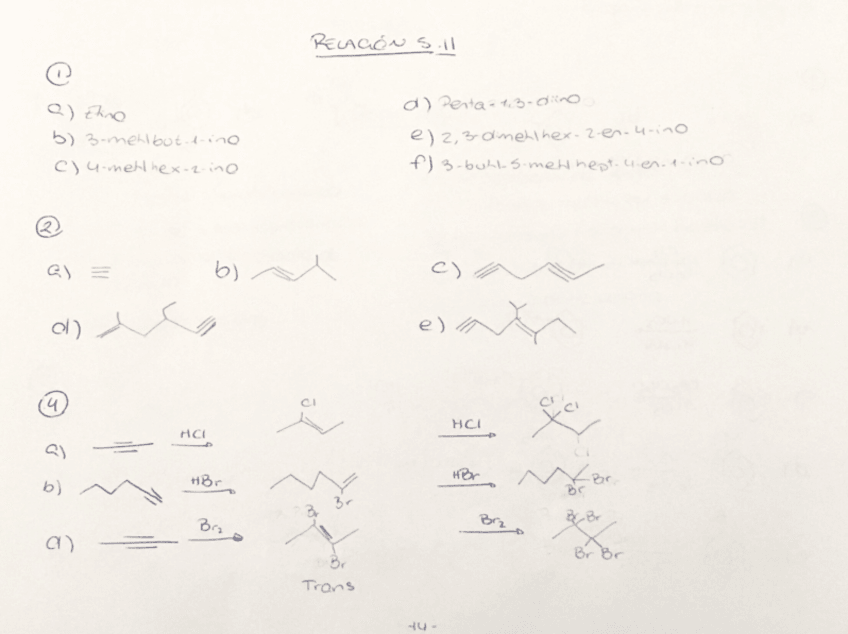 RELACIÓN 5.11
①
a) Etino
b) 3-metilbut-1-ino
c) 4-metilhex-2-ino
d) Penta-1,3-diino
e) 2,3-dimetilhex-2-en-4-ino
f) 3-butil-5-metilhept-4-en-1-ino
②
a)
b)
c)
d)
e)
④
a) HCl Cl HCl Cl Cl Cl
b) HBr Br HBr Br Br
d) Br2 Br Br Br2 Br Br Br Br
Trans
-14-